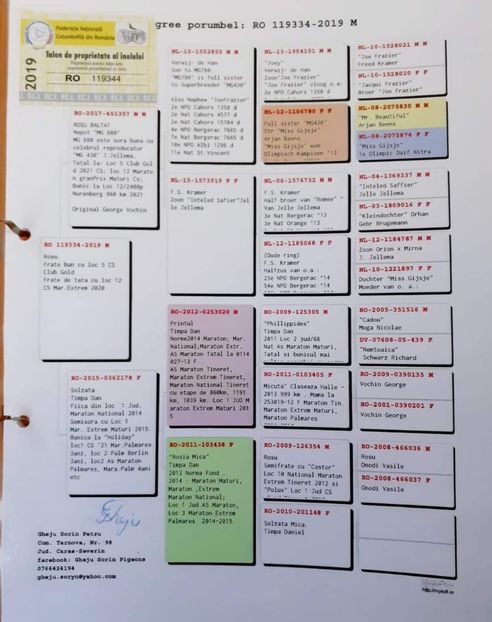 gree porumbel: RO 119334-2019 M
Federația Națională
Columbofilă din România
Talon de proprietate al inelului
2019
RO 119344
RO-2017-451357 M M
ROSU BALTAT
Nepot "MG 680"
MG 680 este sora buna cu
celebrul reproducator
"MG 430" J.Jellema.
Tatal la: Loc 5 Club Gol
d 2021 CS; loc 12 Marato
n granPrix Maturi Cs;
Bunic la Loc 12/2400p
Nurenberg 960 km 2021
Original George Vochin
RO 119334-2019 M
Rosu.
Frate bun cu loc 5 CS
Club Gold
Frate de tata cu loc 12
CS Mar.Extrem 2020
RO-2015-0362178 F
Solzata
Timpa Dan
Fiica din loc 1 Jud.
Maraton National 2014
Semisora cu Loc 1
Mar. Extrem Maturi 2015.
Bunica la "Holiday"
loc1 CS '21 Mar.Palmares
3ani, loc 2 Palm Berlin
3ani, loc2 As Maraton
Palmares, Mara.Palm 4ani
etc
NL-15-1552855 M M
Verwij- de Han
Son to MG780
"MG780" is full sister
to Superbreeder "MG430"
Also Nephew "JoeFrazier"
2e NPO Cahors 1358 d
2e Nat Cahors 4577 d
5e Nat Cahors 10704 d
4e NPO Bergerac 7665 d
5e Nat Bergerac 7665 d
10e NPO Albi 1296 d
11e Nat St.Vincent
NL-15-1573919 F F
F.S. Kramer
Zoon "Inteled Safier"Jel
le Jellema
RO-2012-0253020 M
Printul
Timpa Dan
Norme2014 Maraton; Mar.
National;Maraton Extr.
AS Maraton Tatal la 0114
027-13 F
AS Maraton Tineret,
Maraton Extrem Tineret,
Maraton National Tineret
cu etape de 860km, 1191
km, 1039 km. Loc 1 JUD M
araton Extrem Maturi 201
5
RO-2011-103438 F
"Rosia Mica"
Timpa Dan
2013 Norma Fond .
2014 : Maraton Maturi,
Maraton ,Extrem
Maraton National;
Loc 1 Jud AS Maraton,
Loc 3 Maraton Extrem
Palmares 2014-2015.
NL-13-1954151 M M
"Joey"
Verwij- de Han
Zoon"Joe Frazier"
"Joe Frazier" vloog o.a:
2e NPO Cahors 1358 d
NL-12-1106780 F F
Full sister "MG430"
Dtr "Miss Gijsje"
Arjan Beens
"Miss Gijsje" won
Olympisch Kampioen '13
NL-04-1576732 M M
F.S. Kramer
Half broer van "Romee"
Van Jelle Jellema
3e Nat Bergerac '13
3e Nat Orange '13
NL-12-1185068 F F
(Oude ring)
F.S. Kramer
Halfzus van o.a.:
23e NPO Bergerac '14
54e NPO Bergerac '14
RO-2009-125305 M
"Phillippides"
Timpa Dan
2011 Loc 2 jud/68
Nat As Maraton Maturi,
Tatal si bunicul mai
RO-2011-0103405 F
Micuta" Claseaza Halle -
2013 999 km . Mama la
253019-12 F Maraton Tin.
Maraton Extrem Maturi,
Maraton Palmares
RO-2009-126354 M
Rosu
Semifrate cu "Castor"
Loc 10 National Maraton
Extrem Tineret 2012 si
"Polux" Loc 1 Jud CS
RO-2010-201148 F
Solzata Mica
Timpa Daniel
NL-10-1528021 M
"Joe Frazier"
Freed Kramer
NL-10-1528020 F F
"Jacqui Frazier"
Broer "Joe Frazier"
NL-08-2075830 M M
"Mr. Beautiful"
Arjan Beens
NL-08-2075874 F F
"Miss Gijsje"
1e Olimpic Duif Nitra
NL-04-1369337 M M
"Inteled Saffier"
Jelle Jellema
NL-03-1809016 F F
"Kleindochter" Orhan
Gebr Brugemann
NL-12-1184787 M M
Zoon Orion x Mirna
J. Jellema
NL-10-1221897 F F
Dochter "Miss Gijsje"
Moeder van o. a.:
RO-2005-351516 M
"Cadou"
Moga Nicolae
DV-07608-05-439 F
"Nemtoaica"
Schwarz Richard
RO-2009-0390135 M
Vochin George
RO-2001-0390201 F
Vochin George
RO-2008-466036 M
Rosu
Onodi Vasile
RO-2008-466037 F
Onodi Vasile
Gheju
Gheju Sorin Petru
Com. Tarnova, Nr. 98
Jud. Caras-Severin
facebook: Gheju Sorin Pigeons
0766424194
gheju.soryn@yahoo.com